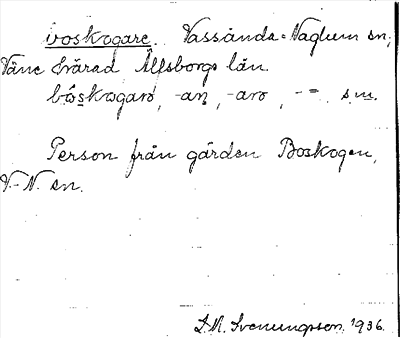 boskogare. Vassända-Naglum sn,
Väne härad Älfsborgs län.
bóskogarə, -an, -arə, -=, s.m.
Person från gården Boskogen,
V.-N. sn.
S.M. Svenungsson. 1936.